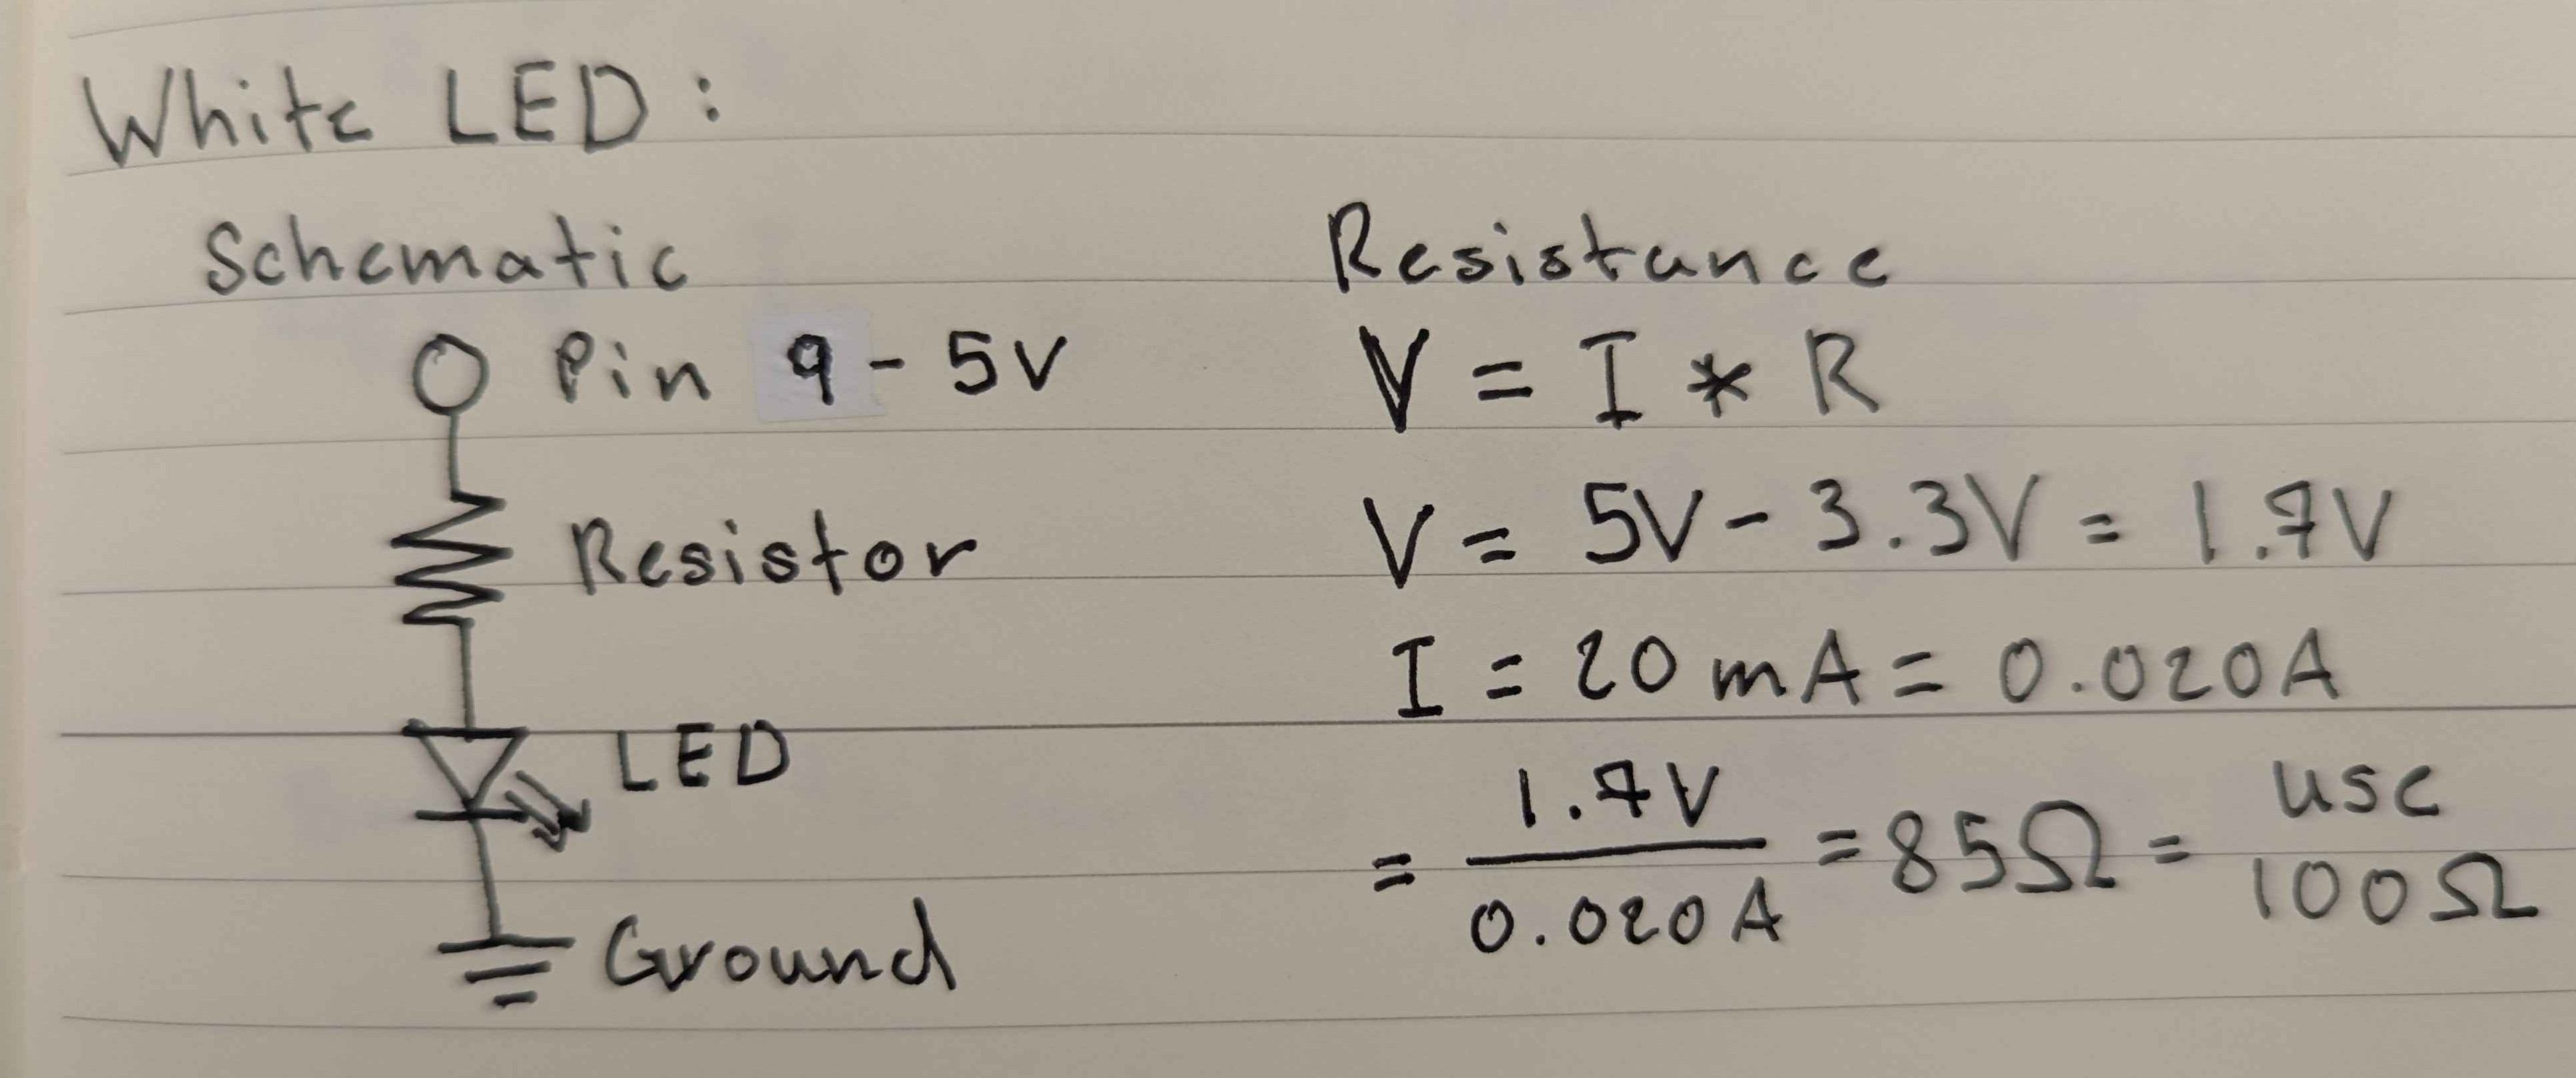 White LED:
Schematic
Pin 9 - 5V
Resistor
LED
Ground
Resistance
V = I * R
V = 5V - 3.3V = 1.7V
I = 20 mA = 0.020A
= 1.7V / 0.020A = 85Ω = use 100Ω